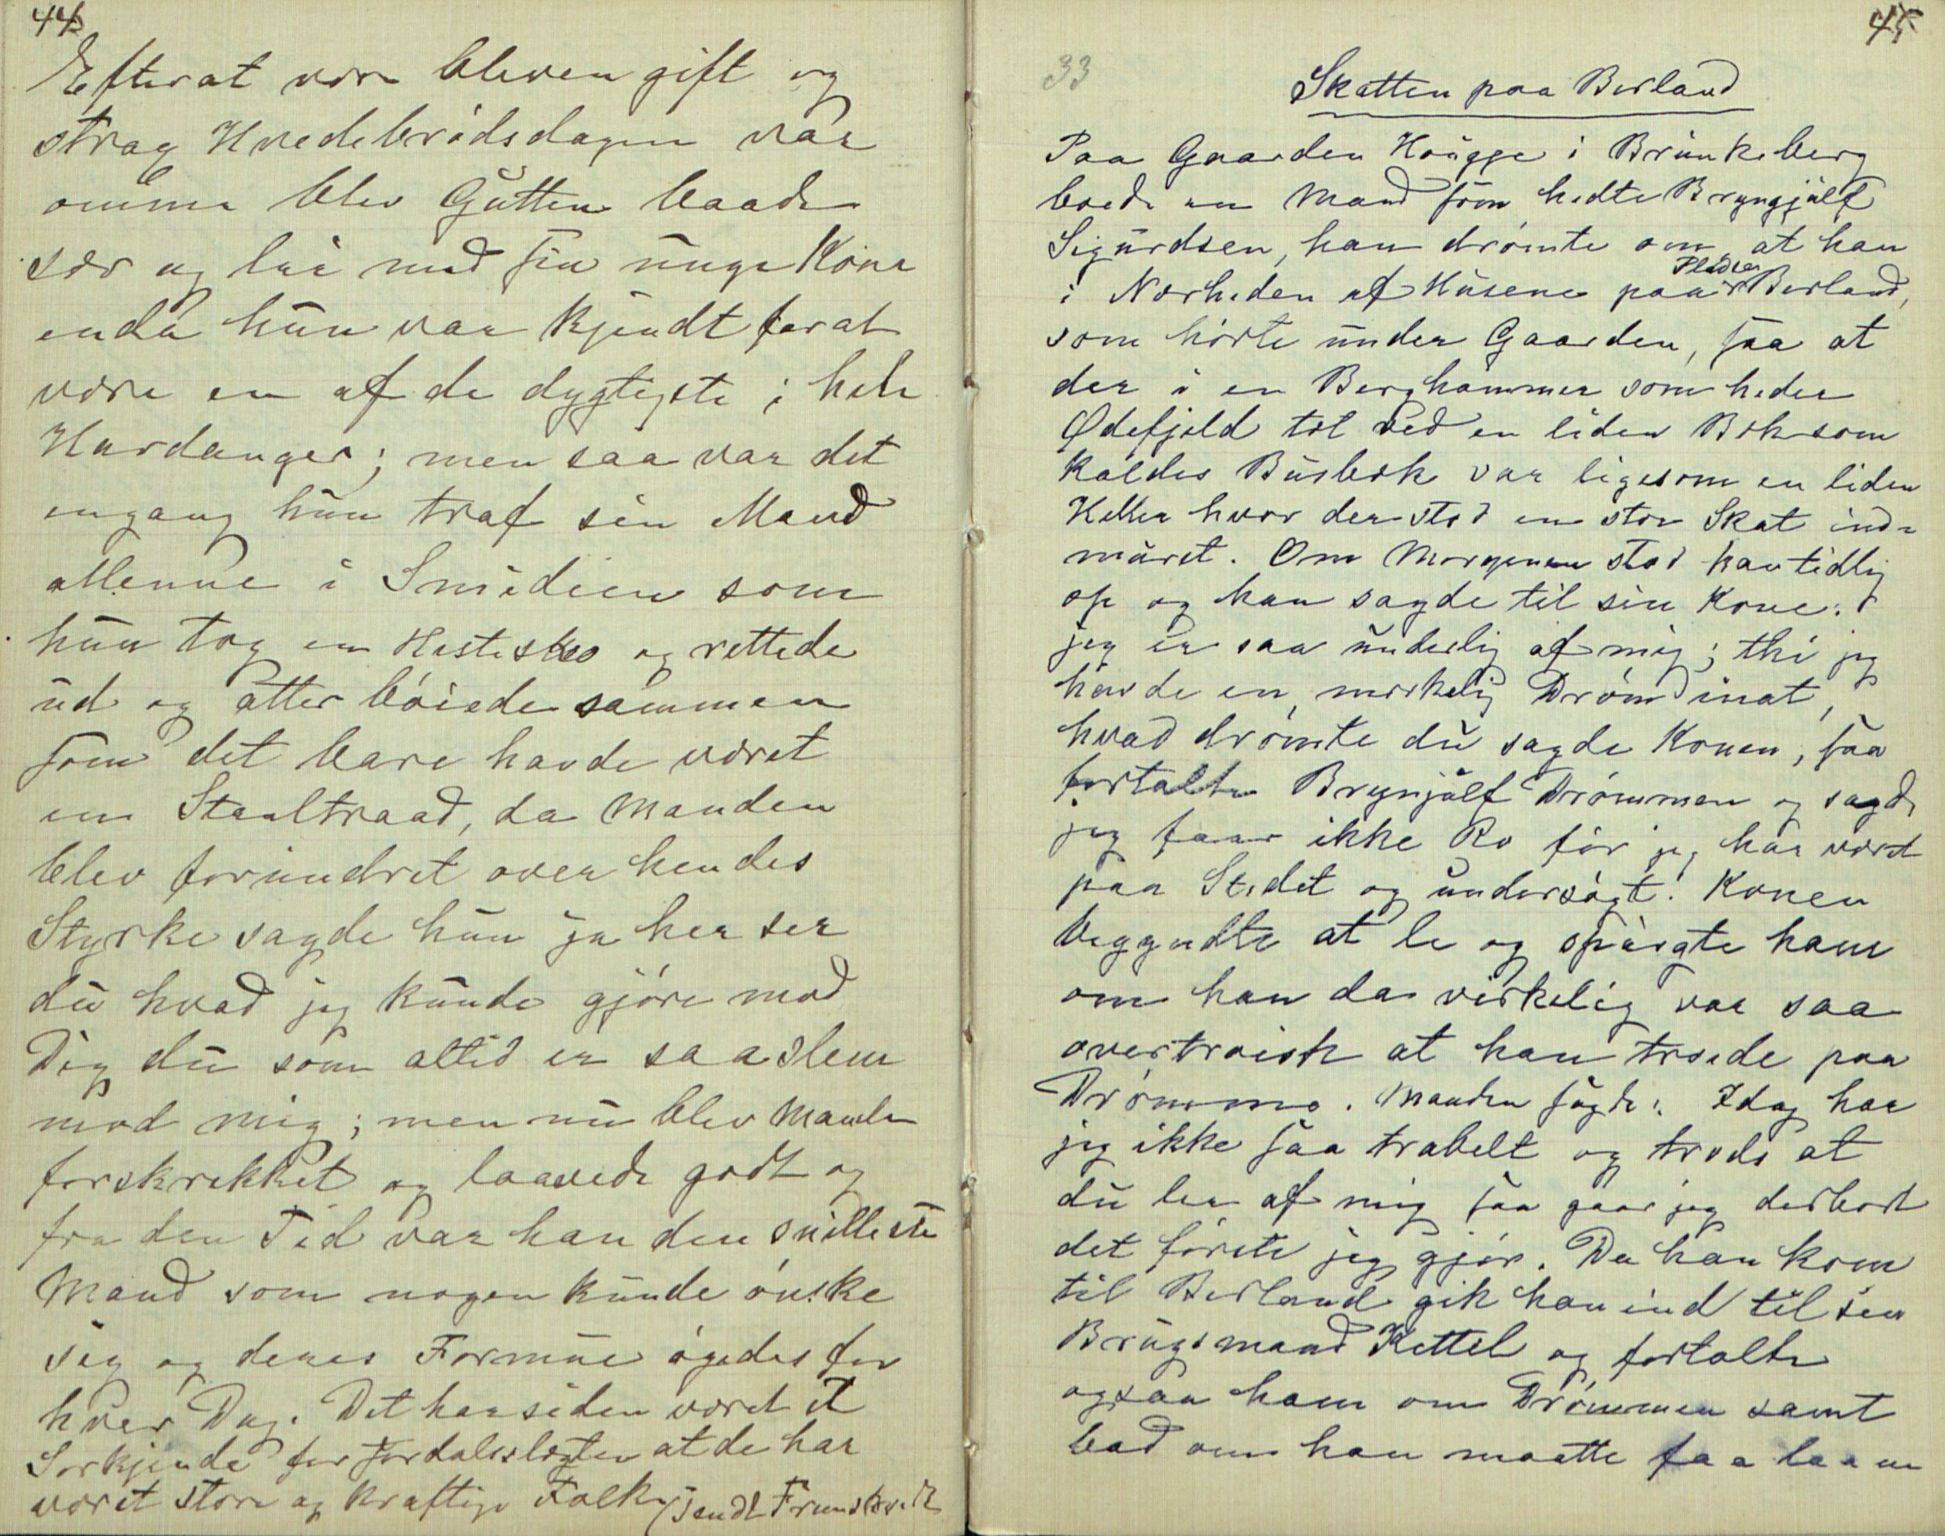 44
Efterat være bleven gift og
strax Hvedebrødsdagene var
omme blev Gutten baade
sær og lei med sin unge Kone
enda hun var kjendt for at
være en af de dygtigste i hele
Hardanger; men saa var det
engang hun traf sin Mand
allenne i Smidien som
hun tog en Hestesko og rettede
ud og atter bøiede sammen
som det bare havde været
en Staaltraad, da Manden
blev forundret over hendes
Styrke sagde hun ja her ser
du hvad jeg kunde gjøre mod
Dig du som altid er saa slem
mod mig; men nu blev Manden
forskrekket og laavede godt og
fra den Tid var han den snilleste
Mand som nogen kunde ønske
sig og deres Formue øgedes for
hver Dag. Det har siden været et
Særkjende for Jordalsslægten at de har
været store og kraftige Folk
45
33
Skatten paa Berland
Paa Gaarden Hougge i Brunkeberg
boede en Mand som hedte Bryngjulf
Sigurdsen, han drømte om, at han
i Nærheden af Husene paa Pladsen Berland,
som hørte under Gaarden, saa at
der i en Berghammer som heder
Ødefjeld tæt ved en liden Bæk som
kaldes Busbæk var ligesom en liden
Heller hvor der stod en stor Skat ind-
muret. Om Morgenen stod han tidlig
op og han sagde til sin Kone:
jeg er saa underlig af mig; thi jeg
havde en merkelig Drøm inat,
hvad drømte du sagde Konen, saa
fortalte Brynjulf Drømmen og sagde
jeg faar ikke Ro før jeg har været
paa Stedet og undersøgt. Konen
begyndte at le og spørgte ham
om han da virkelig var saa
overtroisk at han troede paa
Drømme. Manden sagde: Idag har
jeg ikke saa travelt og trods at
du ler af mig saa gaar jeg derbort
det første jeg gjør. Da han kom
til Berland gik han ind til sin
Brugsmand Kettel og fortalte
ogsaa ham om Drømmen samt
bad om han maatte faa laane